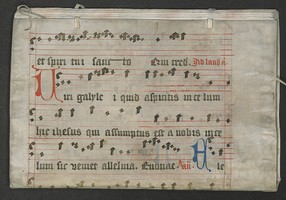 et spiri tui sanc to Euu
Uiri galyle i quid aspicitis in ce lum
hic thesus qui assumptus est a nobis in ce
lum sic veniet alleluia. Euouae An. A le